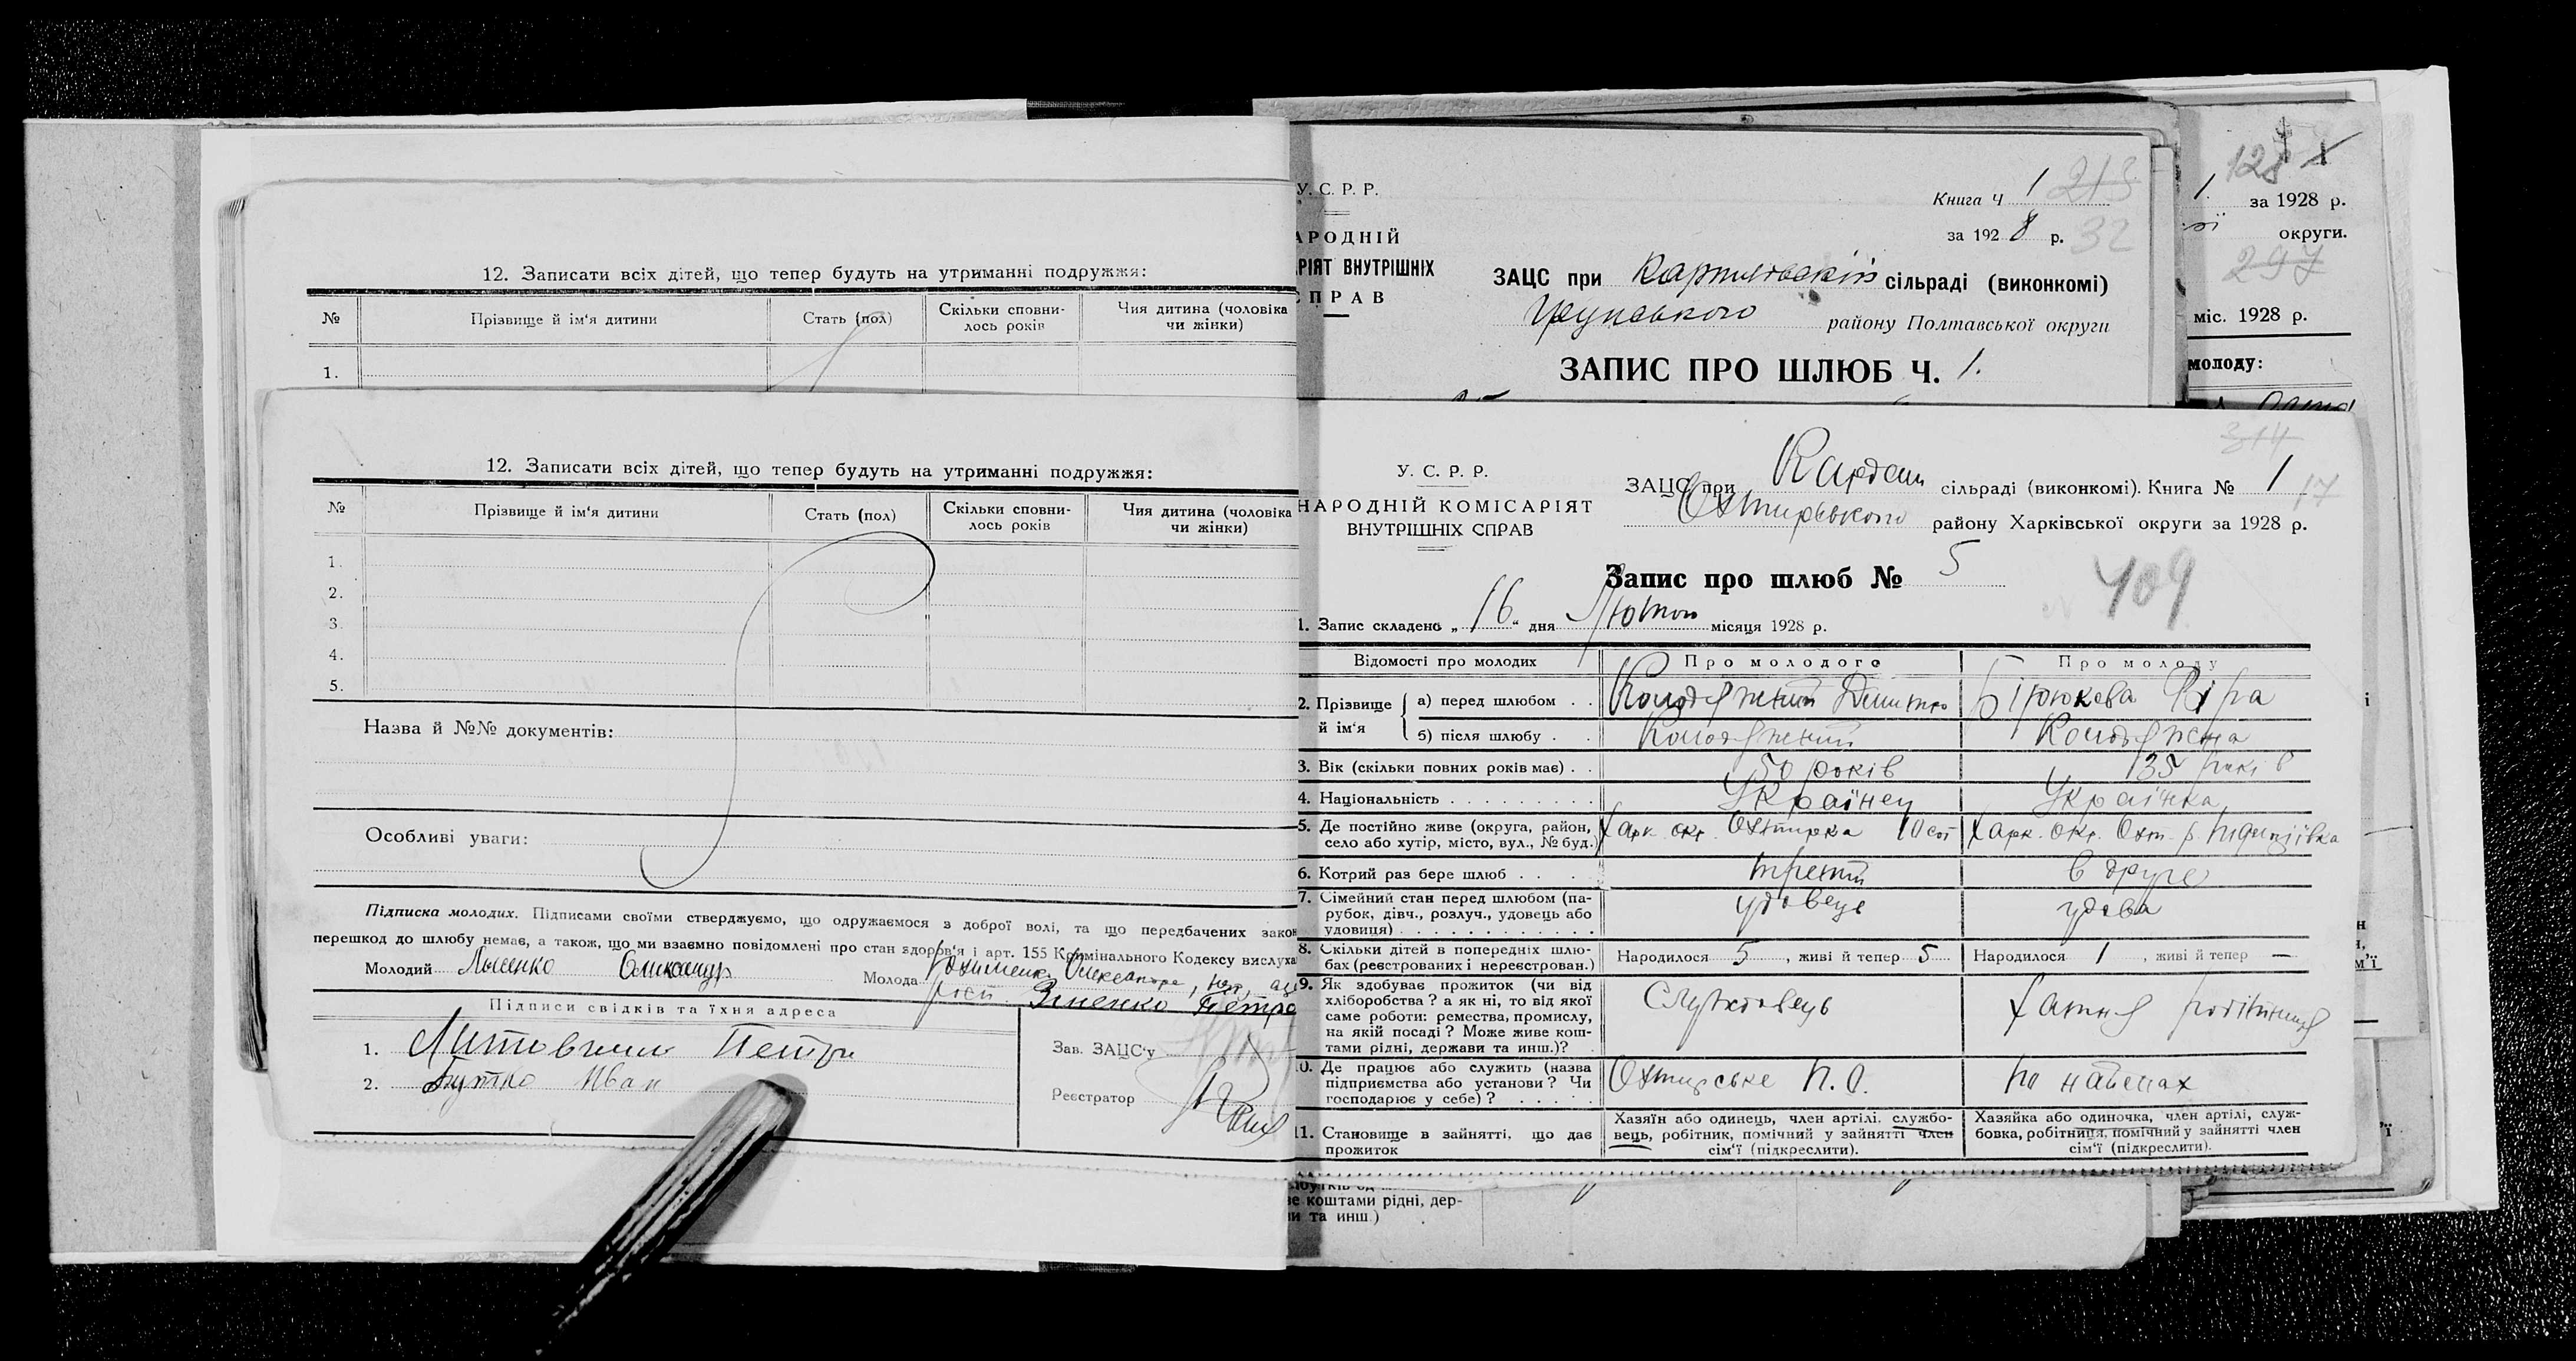 12. Записати всіх дітей, що тепер будуть на утриманні подружжя:
№ Прізвище й ім'я дитини Стать (пол) Скільки сповни-лось років Чия дитина (чоловіка чи жінки)
1.
12. Записати всіх дітей, що тепер будуть на утриманні подружжя:
№ Прізвище й ім'я дитини Стать (пол) Скільки сповни-лось років Чия дитина (чоловіка чи жінки)
1.
2.
3.
4.
5.
Назва й №№ документів:
Особливі уваги:
Підписка молодих. Підписами своїми стверджуємо, що одружаємося з доброї волі, та що передбачених закон
перешкод до шлюбу немає, а також, що ми взаємно повідомлені про стан здоров'я і арт. 155 Кримінального Кодексу вислуха
Молодий Олександр Молода Олександра
Зіненко Петро
Підписи свідків та їхня адреса
1. Литовченко Петро
2. Бутко Иван
Зав. ЗАЦС'у
Реєстратор
У. С. Р. Р.
АРОДНІЙ
РІЯТ ВНУТРІШНІХ
СПРАВ
Книга Ч 1 213
за 1928 р. 32
ЗАЦС при сільраді (виконкомі)
району Полтавської округи
ЗАПИС ПРО ШЛЮБ Ч. 1.
128
1. за 1928 р.
округи.
297
міс. 1928 р.
молоду:
У. С. Р. Р.
НАРОДНІЙ КОМІСАРІЯТ
ВНУТРІШНІХ СПРАВ
314
ЗАЦС при Кардаш сільраді (виконкомі). Книга № 1 17
Охтирського району Харківської округи за 1928 р.
Запис про шлюб № 5
409
1. Запис складено „16“ дня Лютого місяця 1928 р.
Відомості про молодих Про молодого Про молоду
2. Прізвище й ім'я а) перед шлюбом . . Колодяжний Дмитро Бірюкова Віра
б) після шлюбу . . Колодяжний Колодяжна
3. Вік (скільки повних років має) . . 50 років 35 років
4. Національність . . . . . . . . . Українец Українка
5. Де постійно живе (округа, район, село або хутір, місто, вул., № буд.) Харк. окр. Охтирка 10 сот Харк. окр. Охт. р.
6. Котрий раз бере шлюб . . . третій в друге
7. Сімейний стан перед шлюбом (па-рубок, дівч., розлуч., удовець або удовиця) . . . . . . . . . . . . удовець удова
8. Скільки дітей в попередніх шлю-бах (реєстрованих і нереєстрован.) Народилося 5, живі й тепер 5 Народилося 1, живі й тепер —
9. Як здобуває прожиток (чи від хліборобства? а як ні, то від якої саме роботи: ремества, промислу, на якій посаді? Може живе кош-тами рідні, держави та инш.)? Служсовець Хатня робітниця
10. Де працює або служить (назва підприємства або установи? Чи господарює у себе)? . . . . . Охтирське П.О. по наймах
11. Становище в зайнятті, що дає прожиток Хазяїн або одинець, член артілі, службо-вець, робітник, помічний у зайнятті член сім'ї (підкреслити). Хазяйка або одиночка, член артілі, служ-бовка, робітниця, помічний у зайнятті член сім'ї (підкреслити).
е коштами рідні, дер-
и та инш.)